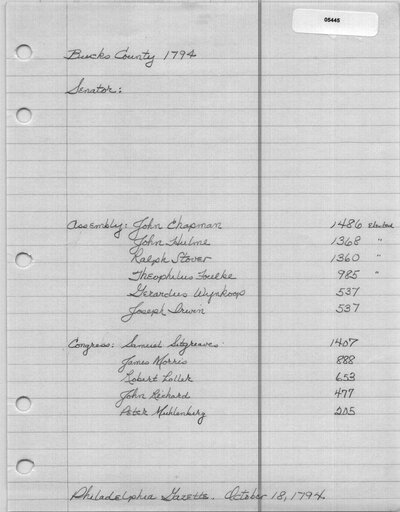 05445
Bucks County 1794
Senator:
Assembly: John Chapman 1486 elected
John Hulme 1368 "
Ralph Stover 1360 "
Theophilus Foulke 985 "
Gerardus Wynkoop 537
Joseph Irwin 537
Congress: Samuel Sitgreaves 1407
James Morris 888
Robert Loller 653
John Richard 477
Peter Muhlenberg 205
Philadelphia Gazette. October 18, 1794.